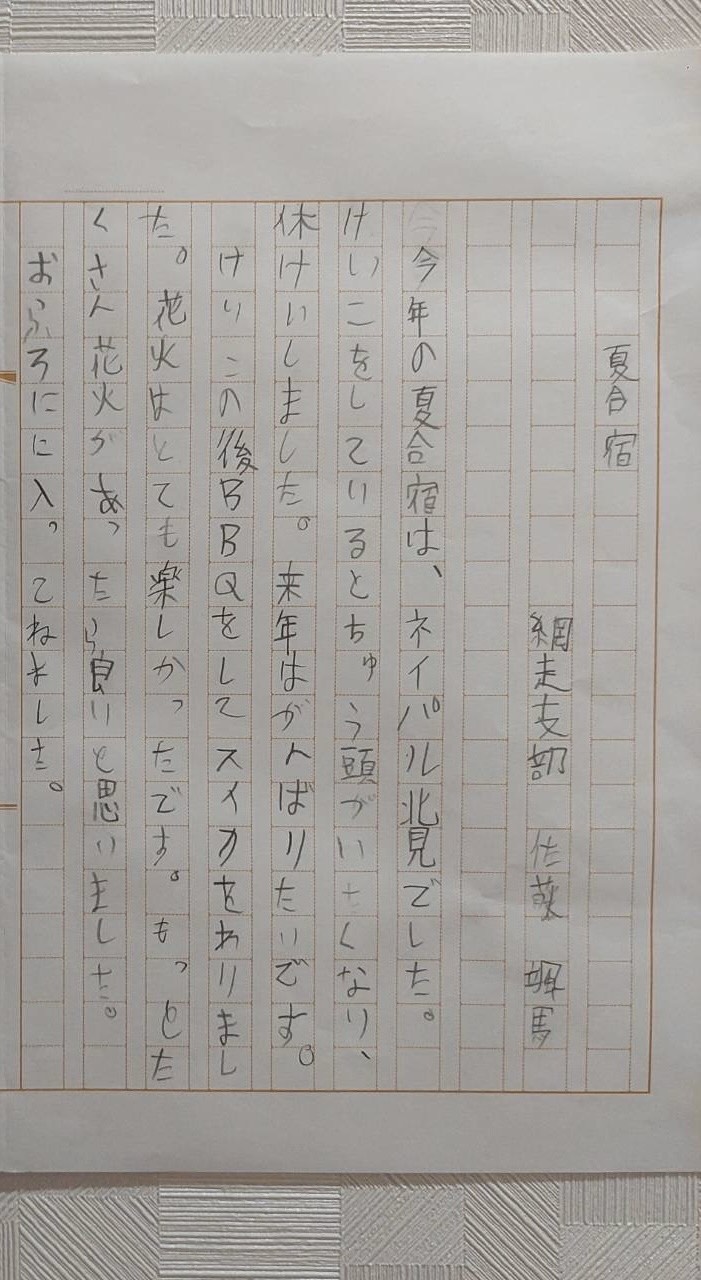 夏合宿
網走支部 佐藤 馬
今年の夏合宿は、ネイパル北見でした。
けいこをしているとちゅう頭がいたくなり、
休けいしました。来年はがんばりたいです。
けいこの後BBQをしてスイカをわりまし
た。花火はとても楽しかったです。もっとた
くさん花火があったら良いと思いました。
おふろにに入ってねました。